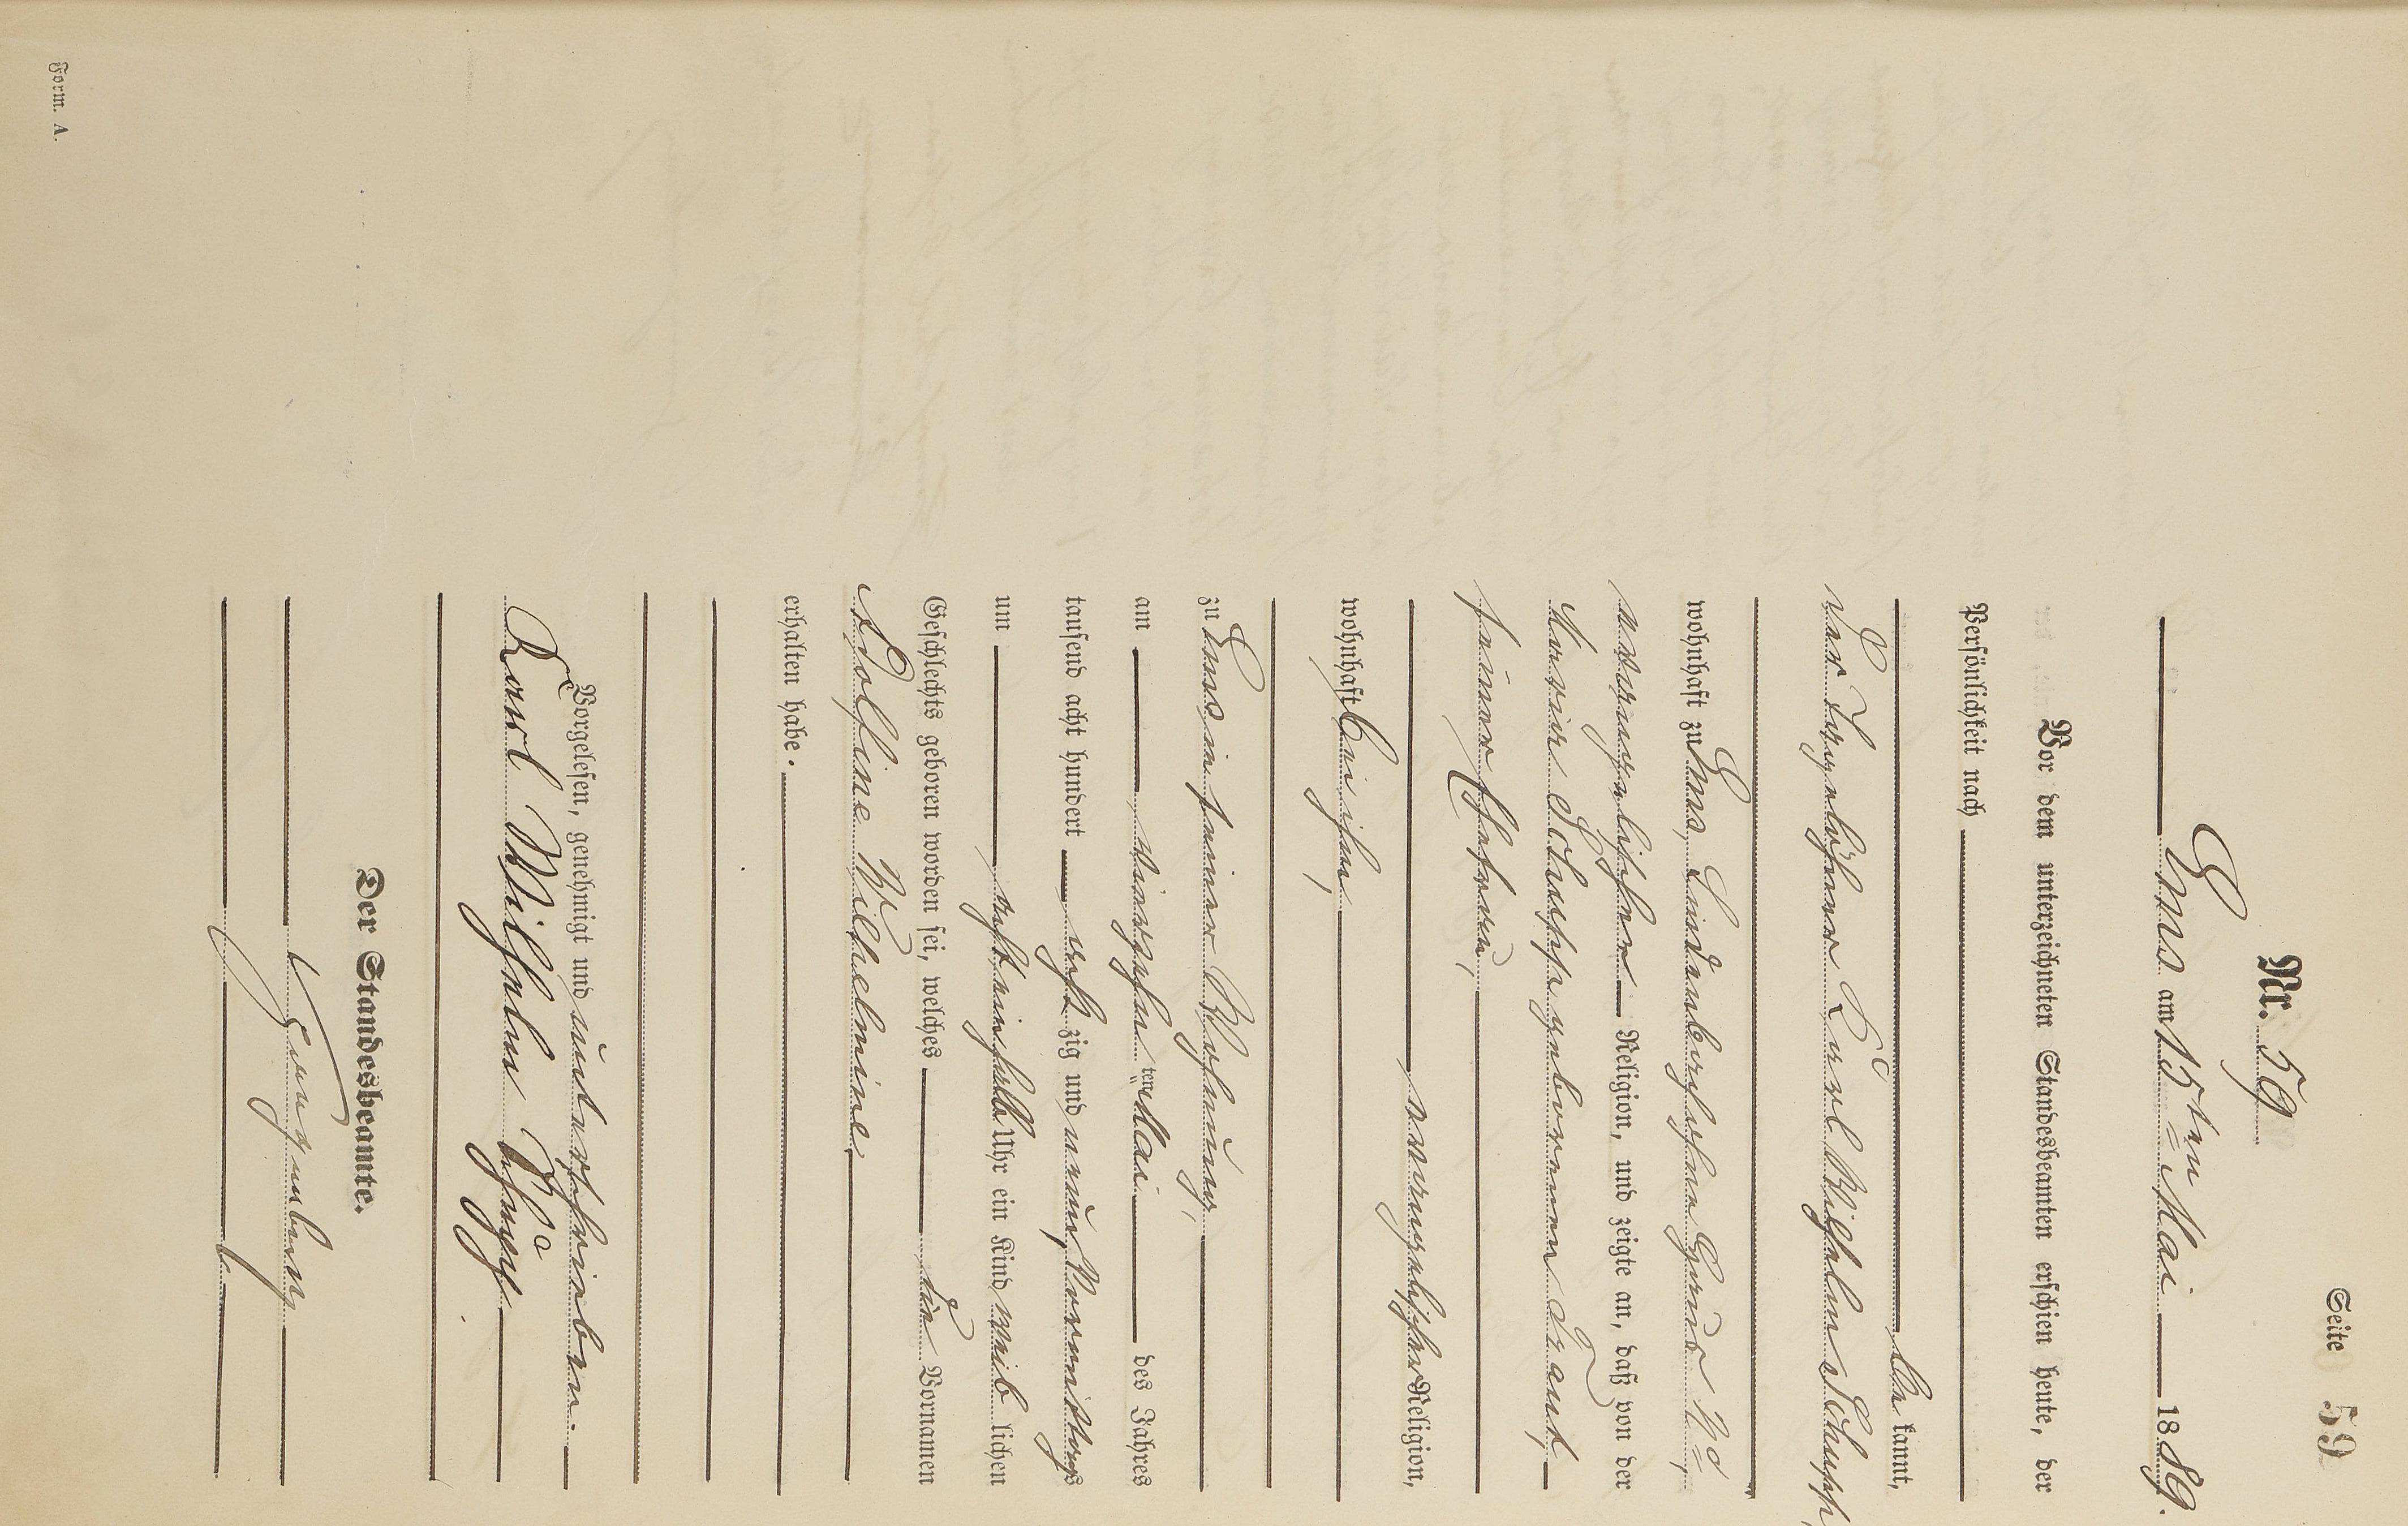 Seite 59
Nr. 59
Ems am 15ten Mai 1889.
Vor dem unterzeichneten Standesbeamten erschien heute, der
Persönlichkeit nach
kannt,
der Tagelöhner Karl Wilhelm Schupp,
wohnhaft zu Ems, Lindenbacher
evangelischer Religion, und zeigte an, daß von der
Marie Schupp geborenen
seiner Ehefrau,
evangelischer Religion,
wohnhaft bei ihm,
zu Ems in seiner Wohnung,
am vierzehnten Mai des Jahres
tausend acht hundert acht zig und neun, Vormittags
um Uhr ein Kind weiblichen
Geschlechts geboren worden sei, welches die Vornamen
Adolfine Wilhelmine
erhalten habe.
Vorgelesen, genehmigt und unterschrieben.
Karl Wilhelm Schupp
Der Standesbeamte.
Form. A.